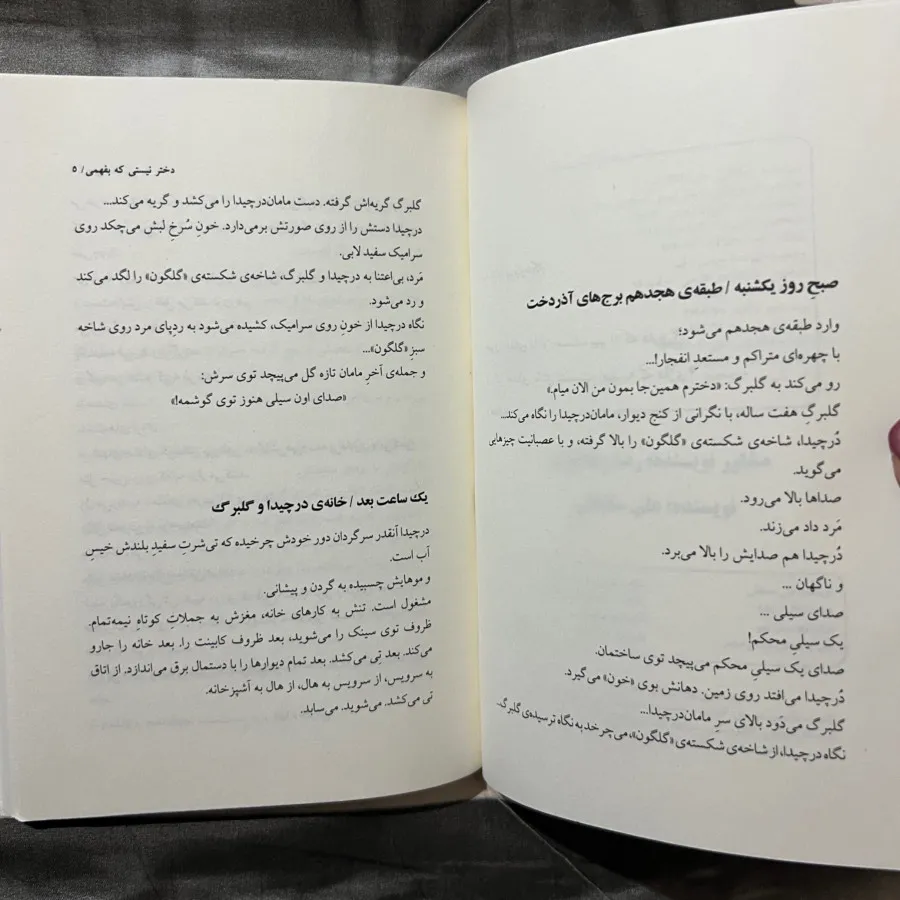 صبحِ روز یکشنبه / طبقه‌ی هجدهم برج‌های آذردخت
وارد طبقه‌ی هجدهم می‌شود؛
با چهره‌ای متراکم و مستعدِ انفجار!...
رو می‌کند به گلبرگ: «دخترم همین‌جا بمون من الان میام.»
گلبرگِ هفت ساله، با نگرانی از کنج دیوار، مامان‌درچیدا را نگاه می‌کند...
دُرچیدا، شاخه‌ی شکسته‌ی «گلگون» را بالا گرفته، و با عصبانیت چیزهایی
می‌گوید.
صداها بالا می‌رود.
مَرد داد می‌زند.
دُرچیدا هم صدایش را بالا می‌برد.
و ناگهان ...
صدای سیلی ...
یک سیلیِ محکم!
صدای یک سیلیِ محکم می‌پیچد توی ساختمان.
دُرچیدا می‌افتد روی زمین. دهانش بوی «خون» می‌گیرد.
گلبرگ می‌دَود بالای سرِ مامان‌درچیدا...
نگاه درچیدا، از شاخه‌ی شکسته‌ی «گلگون»، می‌چرخد به نگاه ترسیده‌ی گلبرگ.
دختر نیستی که بفهمی / ۵
گلبرگ گریه‌اش گرفته. دست مامان‌درچیدا را می‌کشد و گریه می‌کند...
درچیدا دستش را از روی صورتش برمی‌دارد. خونِ سُرخِ لبش می‌چکد روی
سرامیک سفید لابی.
مَرد، بی‌اعتنا به درچیدا و گلبرگ، شاخه‌ی شکسته‌ی «گلگون» را لگد می‌کند
و رد می‌شود.
نگاه درچیدا از خونِ روی سرامیک، کشیده می‌شود به ردِپای مرد روی شاخه
سبزِ «گلگون»...
و جمله‌ی آخرِ مامان تازه گل می‌پیچد توی سرش:
«صدای اون سیلی هنوز توی گوشمه!»
یک ساعت بعد / خانه‌ی درچیدا و گلبرگ
درچیدا آنقدر سرگردان دور خودش چرخیده که تی‌شرتِ سفیدِ بلندش خیسِ
آب است.
و موهایش چسبیده به گردن و پیشانی.
مشغول است. تنش به کارهای خانه، مغزش به جملاتِ کوتاهِ نیمه‌تمام.
ظروف توی سینک را می‌شوید، بعد ظروف کابینت را. بعد خانه را جارو
می‌کند. بعد تِی می‌کشد. بعد تمام دیوارها را با دستمال برق می‌اندازد. از اتاق
به سرویس، از سرویس به هال، از هال به آشپزخانه.
تی می‌کشد. می‌شوید. می‌سابد.